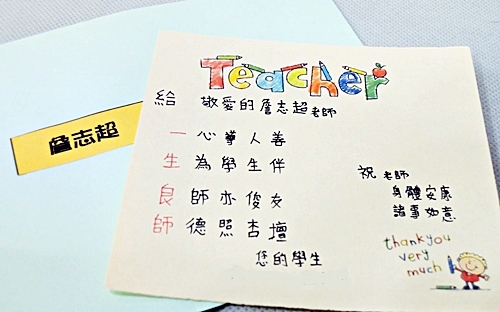 Teacher
給
敬愛的詹志超老師
一心導人善
生為學生伴
良師亦俊友
師德照杏壇
您的學生
祝老師
身體安康
諸事如意
thank you
very
much
詹志超